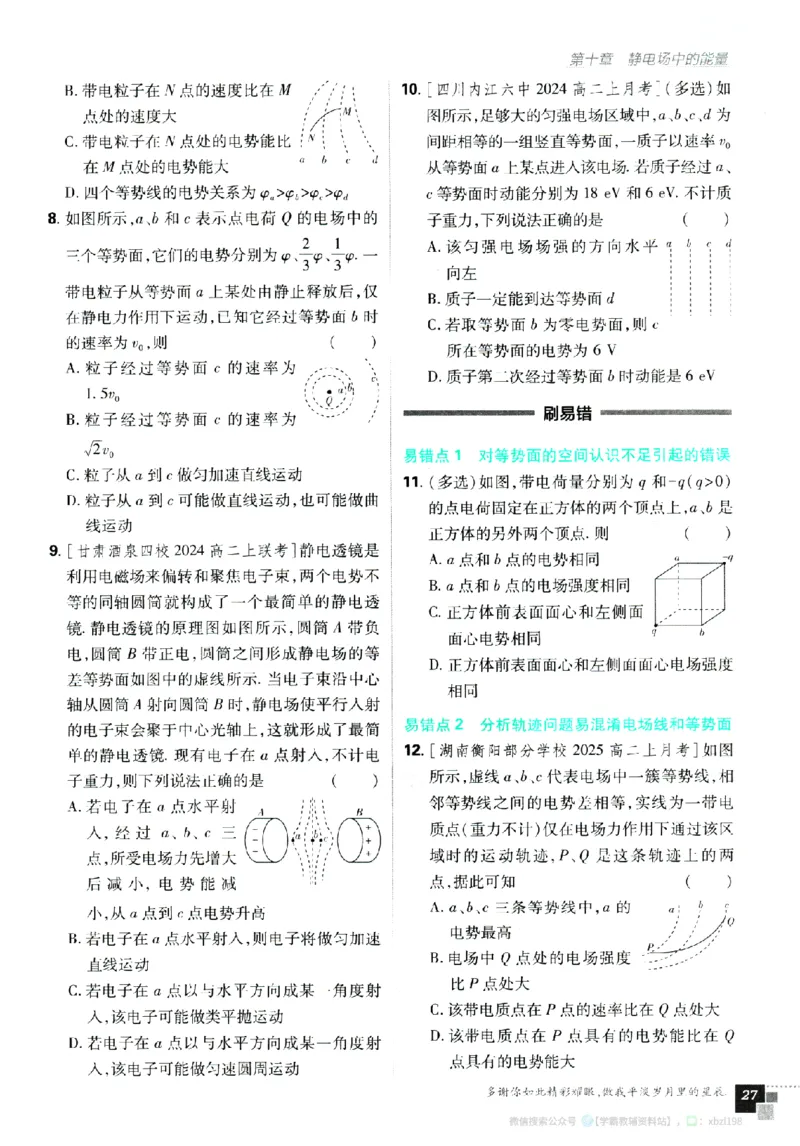 第十章 静电场中的能量
B. 带电粒子在 N 点的速度比在 M
点处的速度大
C. 带电粒子在 N 点处的电势能比
在 M 点处的电势能大
D. 四个等势线的电势关系为 φa>φb>φc>φd
M
N
a b c d
8. 如图所示,a、b 和 c 表示点电荷 Q 的电场中的
三个等势面,它们的电势分别为 φ、2/3φ、1/3φ. 一
带电粒子从等势面 a 上某处由静止释放后,仅
在静电力作用下运动,已知它经过等势面 b 时
的速率为 v₀,则 ( )
A. 粒子经过等势面 c 的速率为
1.5v₀
B. 粒子经过等势面 c 的速率为
√2v₀
a b c
Q
C. 粒子从 a 到 c 做匀加速直线运动
D. 粒子从 a 到 c 可能做直线运动,也可能做曲
线运动
9. [甘肃酒泉四校 2024 高二上联考]静电透镜是
利用电磁场来偏转和聚焦电子束,两个电势不
等的同轴圆筒就构成了一个最简单的静电透
镜. 静电透镜的原理图如图所示,圆筒 A 带负
电,圆筒 B 带正电,圆筒之间形成静电场的等
差等势面如图中的虚线所示. 当电子束沿中心
轴从圆筒 A 射向圆筒 B 时,静电场使平行入射
的电子束会聚于中心光轴上,这就形成了最简
单的静电透镜. 现有电子在 a 点射入,不计电
子重力,则下列说法正确的是 ( )
A. 若电子在 a 点水平射
入, 经 过 a、b、c 三
点,所受电场力先增大
后 减 小, 电 势 能 减
小,从 a 点到 c 点电势升高
A B
a b c
B. 若电子在 a 点水平射入,则电子将做匀加速
直线运动
C. 若电子在 a 点以与水平方向成某一角度射
入,该电子可能做类平抛运动
D. 若电子在 a 点以与水平方向成某一角度射
入,该电子可能做匀速圆周运动
10. [四川内江六中 2024 高二上月考](多选)如
图所示,足够大的匀强电场区域中,a、b、c、d 为
间距相等的一组竖直等势面,一质子以速率 v₀
从等势面 a 上某点进入该电场. 若质子经过 a、
c 等势面时动能分别为 18 eV 和 6 eV. 不计质
子重力,下列说法正确的是 ( )
A. 该匀强电场场强的方向水平
向左
a b c d
B. 质子一定能到达等势面 d
C. 若取等势面 b 为零电势面,则 c
所在等势面的电势为 6 V
D. 质子第二次经过等势面 b 时动能是 6 eV
刷易错
易错点 1 对等势面的空间认识不足引起的错误
11. (多选)如图,带电荷量分别为 q 和-q(q>0)
的点电荷固定在正方体的两个顶点上,a、b 是
正方体的另外两个顶点. 则 ( )
A. a 点和 b 点的电势相同
B. a 点和 b 点的电场强度相同
C. 正方体前表面面心和左侧面
面心电势相同
a -q
q b
D. 正方体前表面面心和左侧面面心电场强度
相同
易错点 2 分析轨迹问题易混淆电场线和等势面
12. [湖南衡阳部分学校 2025 高二上月考]如图
所示,虚线 a、b、c 代表电场中一簇等势线,相
邻等势线之间的电势差相等,实线为一带电
质点(重力不计)仅在电场力作用下通过该区
域时的运动轨迹,P、Q 是这条轨迹上的两
点,据此可知 ( )
A. a、b、c 三条等势线中,a 的
电势最高
a b c
Q
P
B. 电场中 Q 点处的电场强度
比 P 点处大
C. 该带电质点在 P 点的速率比在 Q 点处大
D. 该带电质点在 P 点具有的电势能比在 Q
点具有的电势能大
多谢你如此精彩耀眼,做我平淡岁月里的星辰 27
微信搜索公众号 【学霸教辅资料站】, : xbzl198